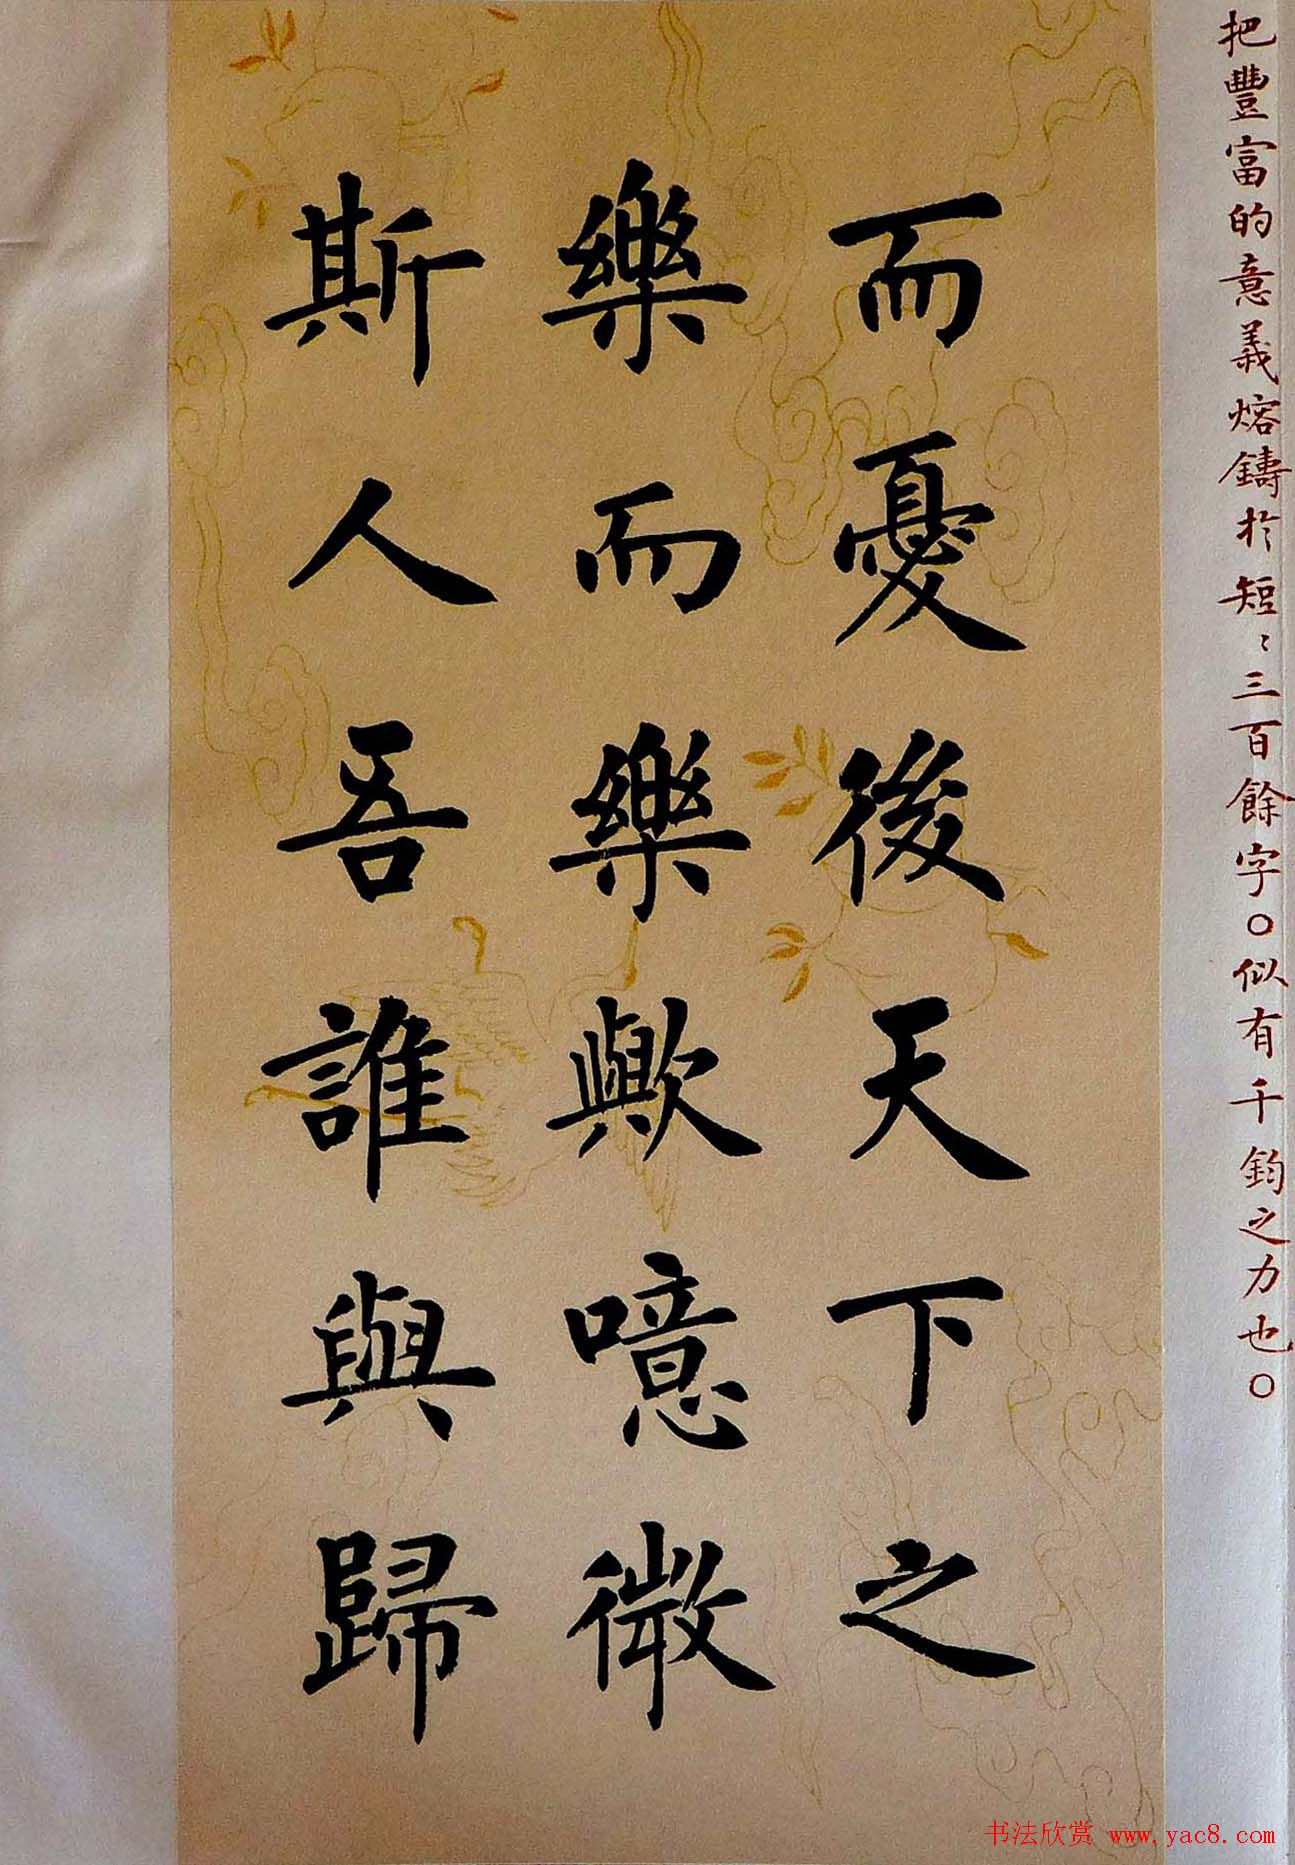 把豐富的意義熔鑄於短〻三百餘字。似有千鈞之力也。
而憂後天下之
樂而樂歟噫微
斯人吾誰與歸
书法欣赏 www.yac8.com